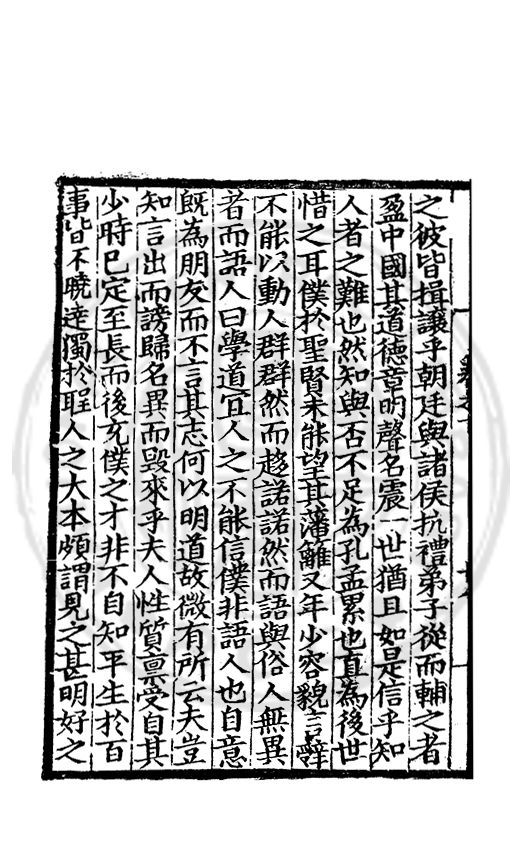 之彼皆揖讓乎朝廷與諸侯抗禮弟子從而輔之者
盈中國其道德章明聲名震一世猶且如是信乎知
人者之難也然知與否不足為孔孟累也直為後世
惜之耳僕於聖賢未能望其藩籬又年少容貌言辭
不能以動人群群然而趨諾諾然而語與俗人無異
者而語人曰學道宜人之不能信僕非語人也自意
既為朋友而不言其志何以明道故微有所云夫豈
知言出而謗歸名異而毀來乎夫人性質禀受自其
少時已定至長而後充僕之才非不自知平生於百
事皆不曉達獨於聖人之大本頗謂見之甚明好之